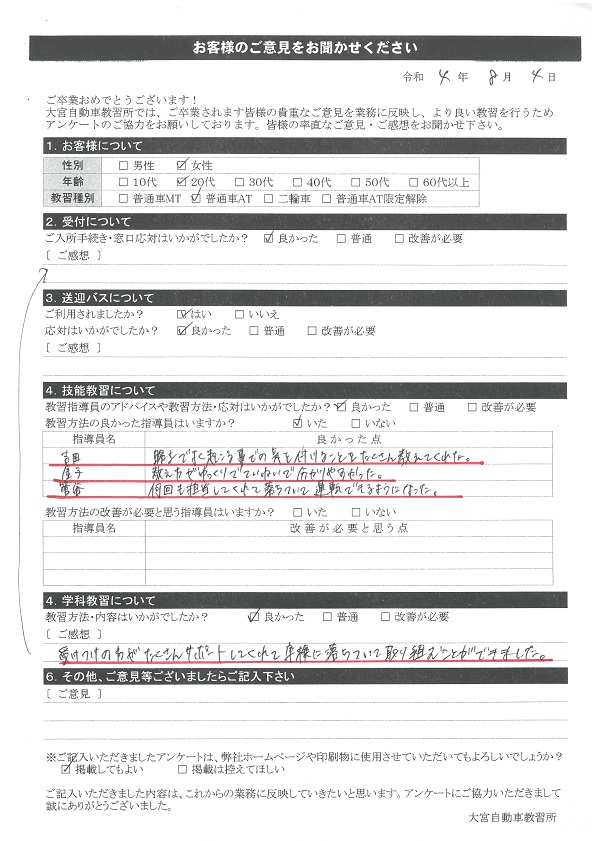 お客様のご意見をお聞かせください
令和 4 年 8 月 4 日
ご卒業おめでとうございます！
大宮自動車教習所では、ご卒業されます皆様の貴重なご意見を業務に反映し、より良い教習を行うため
アンケートのご協力をお願いしております。皆様の率直なご意見・ご感想をお聞かせ下さい。
1. お客様について
性別 □ 男性 ☑ 女性
年齢 □ 10代 ☑ 20代 □ 30代 □ 40代 □ 50代 □ 60代以上
教習種別 □ 普通車MT ☑ 普通車AT □ 二輪車 □ 普通車AT限定解除
2. 受付について
ご入所手続き・窓口応対はいかがでしたか？ ☑ 良かった □ 普通 □ 改善が必要
[ ご感想 ]
3. 送迎バスについて
ご利用されましたか？ ☑ はい □ いいえ
応対はいかがでしたか？ ☑ 良かった □ 普通 □ 改善が必要
[ ご感想 ]
4. 技能教習について
教習指導員のアドバイスや教習方法・応対はいかがでしたか？ ☑ 良かった □ 普通 □ 改善が必要
教習方法の良かった指導員はいますか？ ☑ いた □ いない
指導員名 良かった点
吉田 よく起こる事での気を付けることをたくさん教えてくれた。
金子 教え方がゆっくりでていねいで分かりやすかった。
菅谷 何回も担当してくれて落ちついて運転できるようになった。
教習方法の改善が必要と思う指導員はいますか？ □ いた □ いない
指導員名 改善が必要と思う点
4. 学科教習について
教習方法・内容はいかがでしたか？ ☑ 良かった □ 普通 □ 改善が必要
[ ご感想 ]
受けつけの方がたくさんサポートしてくれて本検に落ちついて取り組むことができました。
6. その他、ご意見等ございましたらご記入下さい
[ ご意見 ]
※ご記入いただきましたアンケートは、弊社ホームページや印刷物に使用させていただいてもよろしいでしょうか？
☑ 掲載してもよい □ 掲載は控えてほしい
ご記入いただきました内容は、これからの業務に反映していきたいと思います。アンケートにご協力いただきまして
誠にありがとうございました。
大宮自動車教習所